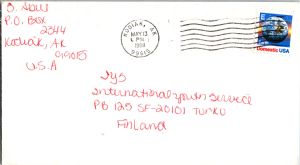 P.O. Box
2344
Kodiak, AK
99615
U.S.A
KODIAK, AK
MAY 13
PM
1988
99615
E
Domestic USA
IYS
International Youth Service
PB 125 SF-20101 Turku
Finland